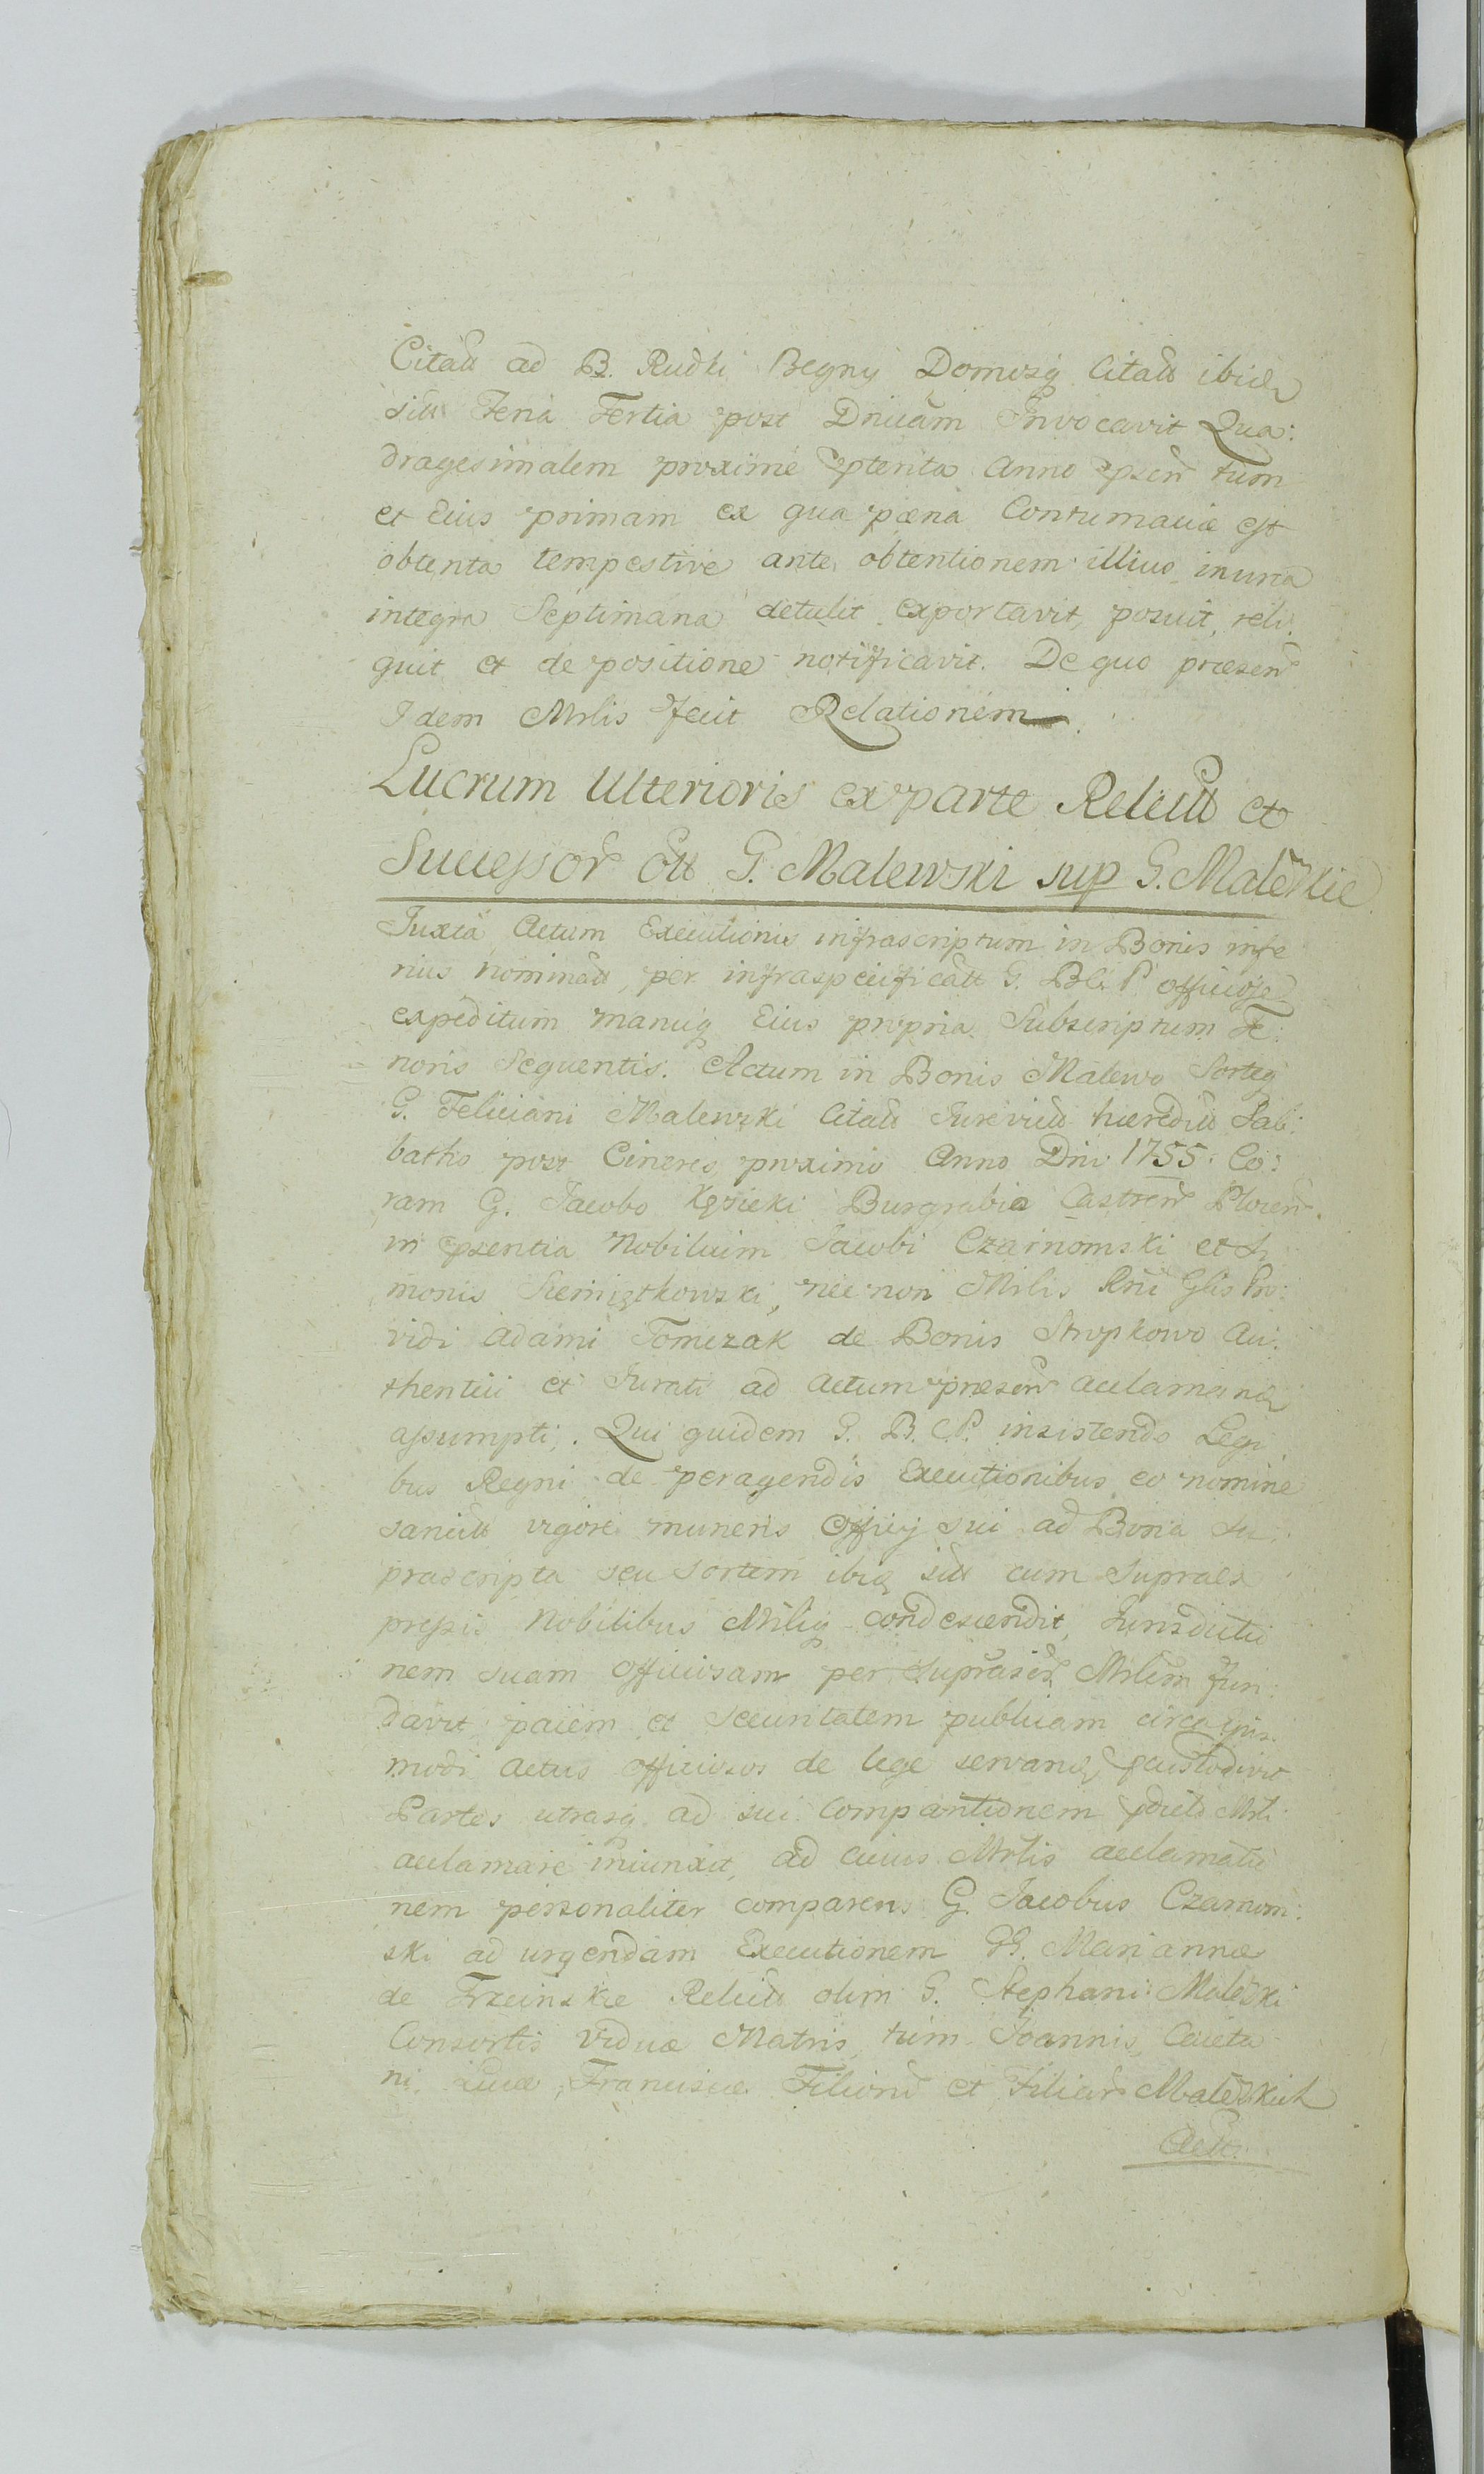 Citatt ad B. Rudki Begny Domusq Citatt ibidẽ
sitt Feria Tertia post Dnicam Invocavit Qua:
dragesimalem proxime ptenta Anno psen tum
et Eius primam ex qua pæna Contumaciæ est
obtenta tempestive ante obtentionem illius in una
integra Septimana detulit exportavit, posuit, reli:
quit et de positione notificavit. De quo præsen
Idem Mrlis fecit Relationem.
Lucrum Ulterioris ex parte Relictt et
Successor ott G. Malewski sup G. Maleskie
Juxta Actum Executionis infrascriptum in Bonis infe
rius nominatt, per infraspecificatt G. B. C. P. officiose
expeditum manuq Eius propria Subscriptum Te:
noris Sequentis. Actum in Bonis Malewo Sorteq
G. Feliciani Malewski Citatt Jurevictt hæreditt Sab:
batho post Cineres proximo Anno Dni 1755. Co:
ram G. Jacobo Kęsicki Burgrabio Castren Plocen.
in psentia Nobilium Jacobi Czarnomski et Si
monis Siemiątkowski, nec non Mrlis Rni Glis Pro:
vidi Adami Tomczak de Bonis Stropkowo Au:
thentici et Jurati ad Actum præsen acclamand
assumpti. Qui quidem G. B. C. P. insistendo Legi
bus Regni de peragendis Executionibus eo nomine
sancitt vigore muneris Officij sui ad Bona Su
prascripta seu Sortem ibiq sitt cum Supraex
pressis Nobilibus Mrliq condescendit, Jurisdictio
nem suam officiosam per Suprascr Mrlem fun:
davit pacem et securitatem publicam circa huis
modi Actus officiosos de lege servand pcustodivit
Partes utrasq ad sui comparitionem pdicto Mrli
acclamare iniunxit, ad cuius Mrlis acclamatio
nem personaliter comparens G. Jacobus Czarnom:
ski ad urgendam Executionem GG. Mariannæ
de Trzcinskie Relictt olim G. Stephani Maleski
Consortis viduæ Matris, tum Joannis, Caieta
ni, Luciæ, Franciscæ Filiorũ et Filiarũ Maleskich
Actt: